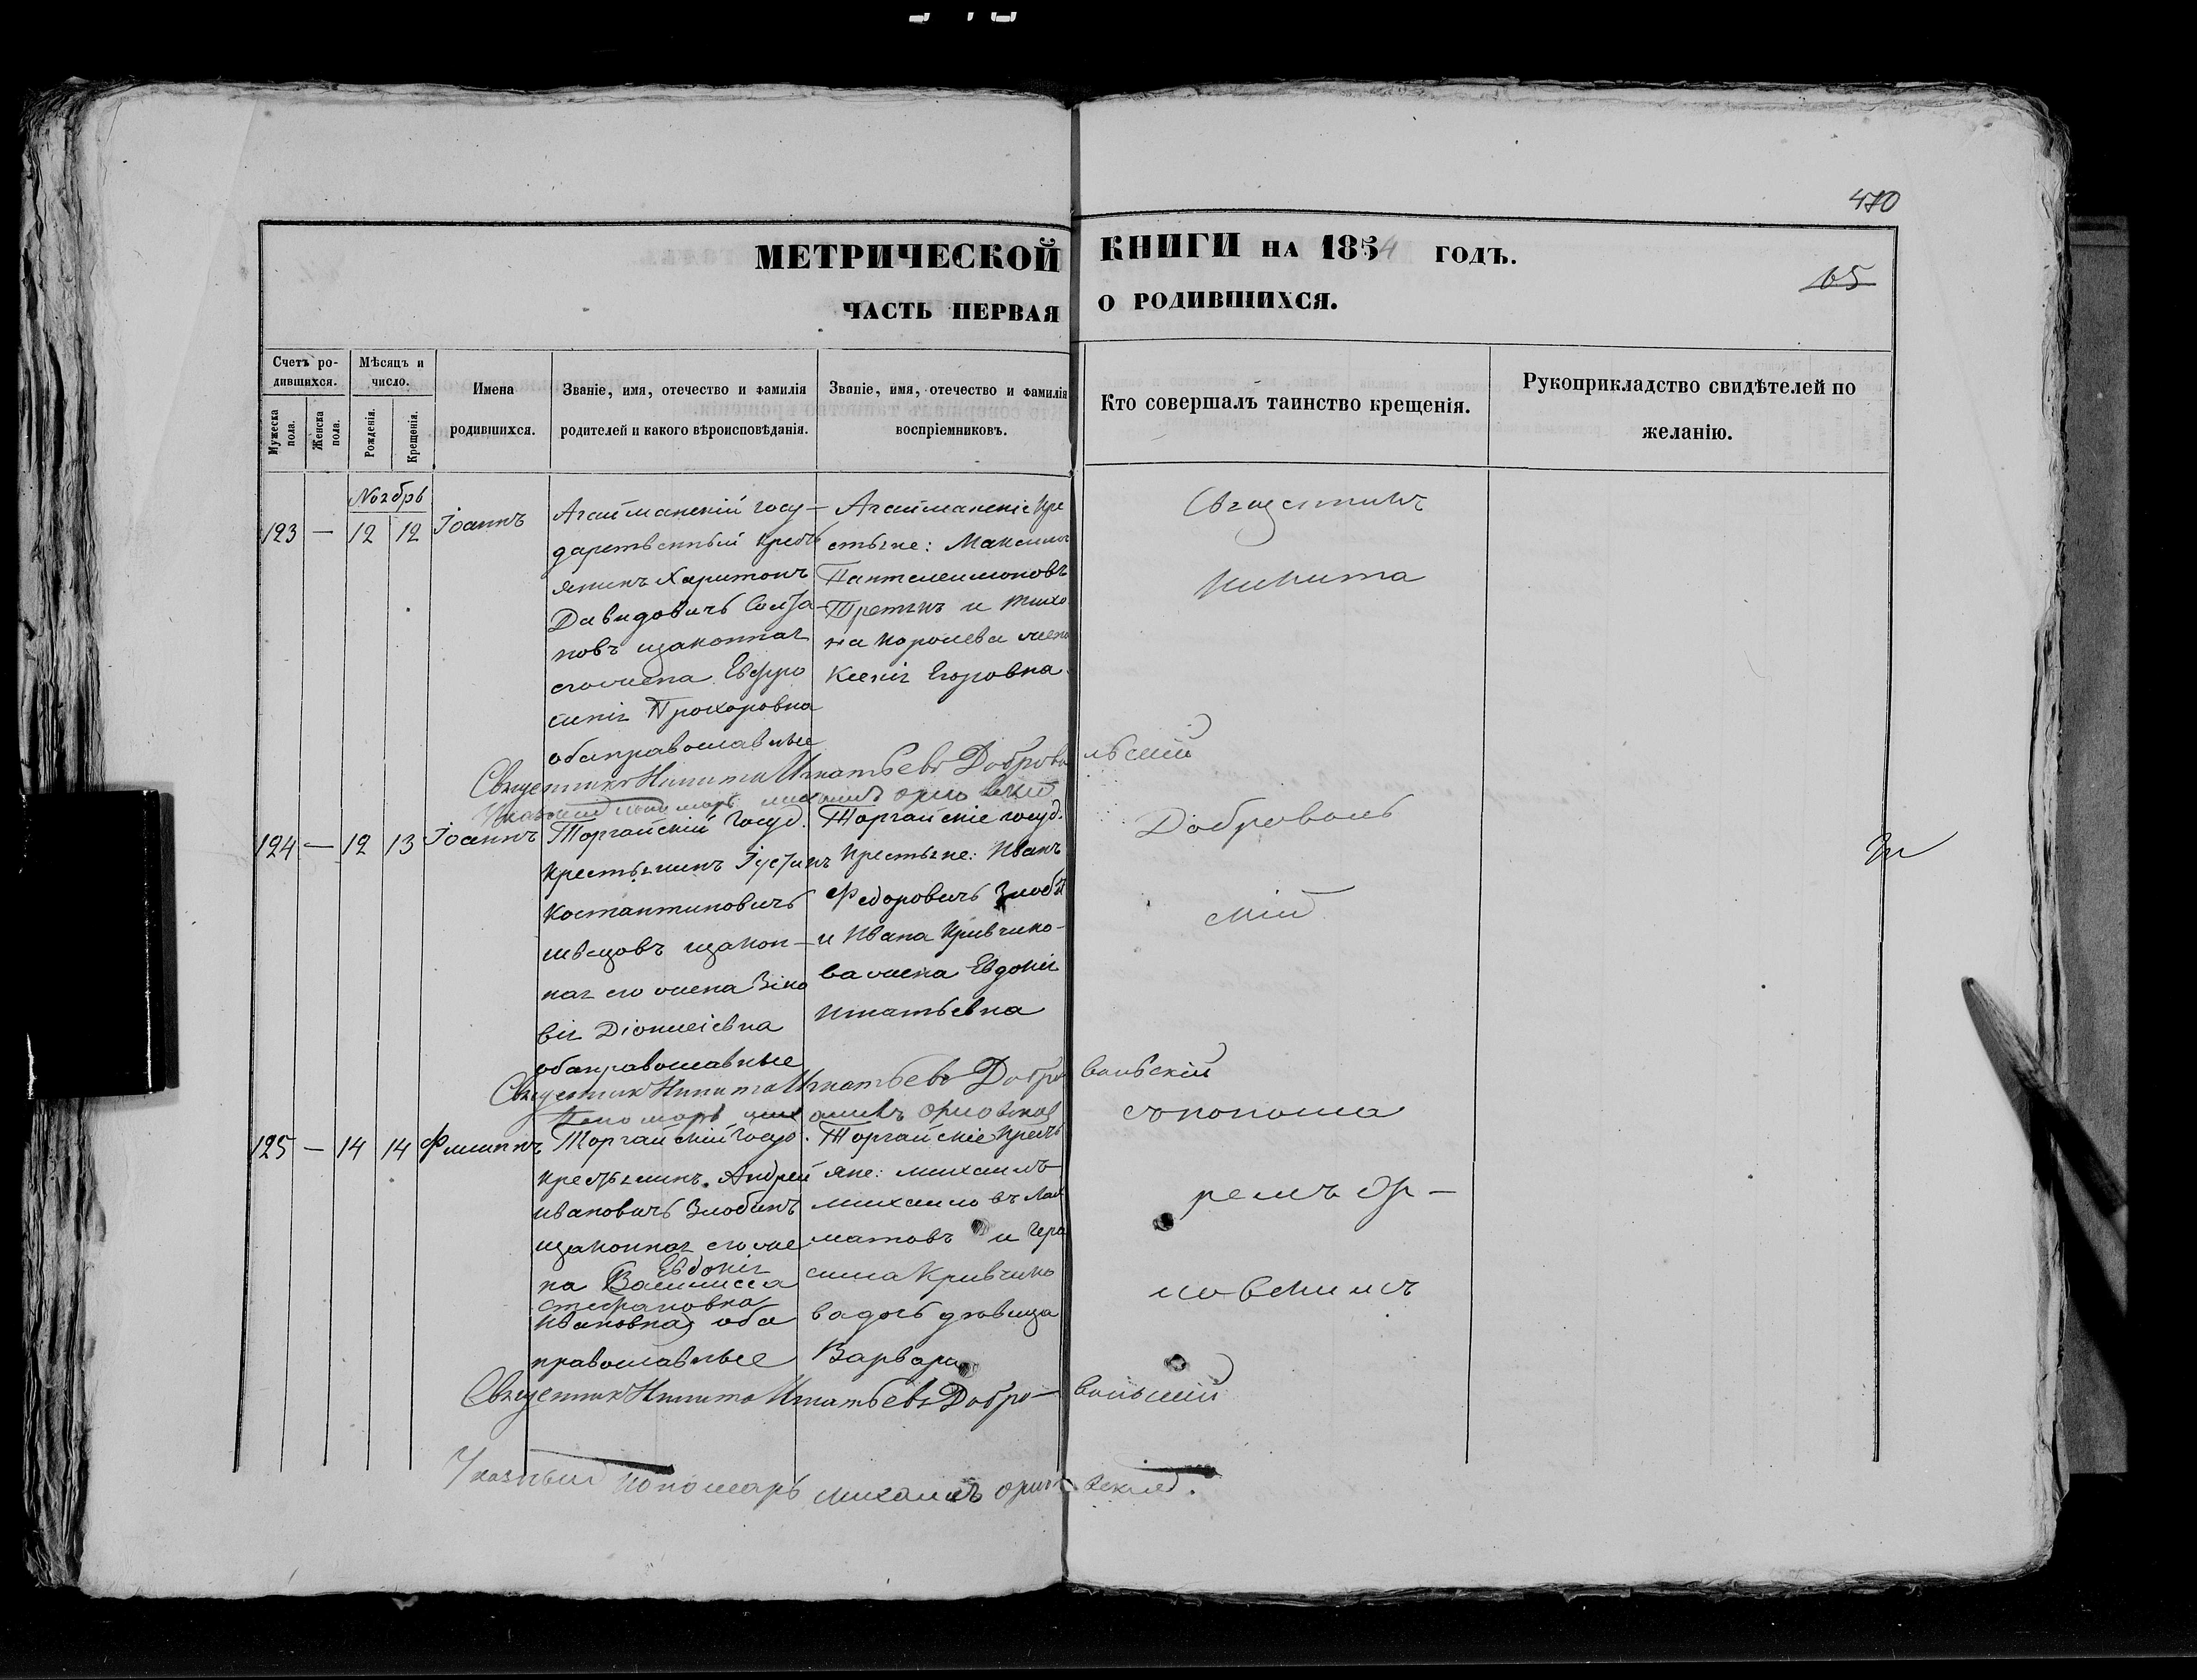 470
МЕТРИЧЕСКОЙ КНИГИ НА 1854 ГОДЪ.
105
ЧАСТЬ ПЕРВАЯ О РОДИВШИХСЯ.
Счетъ ро-
дившихся.
Мужеска пола.
Женска пола.
Мѣсяцъ и
число.
Рожденія.
Крещенія.
Имена
родившихся.
Званіе, имя, отечество и фамилія
родителей и какого вѣроисповѣданія.
Званіе, имя, отечество и фамилія
воспріемниковъ.
Кто совершалъ таинство крещенія.
Рукоприкладство свидѣтелей по
желанію.
Ноябрь
123 — 12 12 Іоаннъ
Агайманскій госу-
дарственный кресть
янинъ Харитонъ
Давидовичъ
новъ изаконная
его жена Евфро
синія Прохоровна
обаправославные
Агайманскіе кре
стьяне: Максимъ
Пантелеимоновъ
Третякъ и Тихо
на Королева жена
Ксенія Егоровна
Священникъ
Никита
Священникъ Никита Игнатьевъ Добровольскій
пономарь Михаилъ Орловскій
124 — 12 13 Іоаннъ
Торгайскій Госуд.
крестьянинъ Іустинъ
Костантиновичъ
швецовъ изакон-
ная его жена Зіно
вія Діонисіевна
обаправославные
Торгайскіе госуд.
крестьяне: Иванъ
Федоровичъ Злоби
и Ивана Кривчико-
ва жена Евдокія
Игнатьевна
Доброволь
скій
Священникъ Никита Игнатьевъ Добровольскій
Пономарь Михаилъ Орловскій
125 — 14 14 Филиппъ
Торгайскій Госуд.
крестьянинъ Андрей
Ивановичъ Злобинъ
изаконная его же
на Василисса
Евдокія
Стефановна
Ивановна, оба
православные
Торгайскіе кресть
яне: Михаилъ
Михаиловъ
матовъ и Гера
сима Кривчико
ва дочь дѣвица
Варвара
спонома
ремъ Ор-
ловскимъ
Священникъ Никита Игнатьевъ Добро-вольскій
Указный пономарь Михаилъ Орловскій.